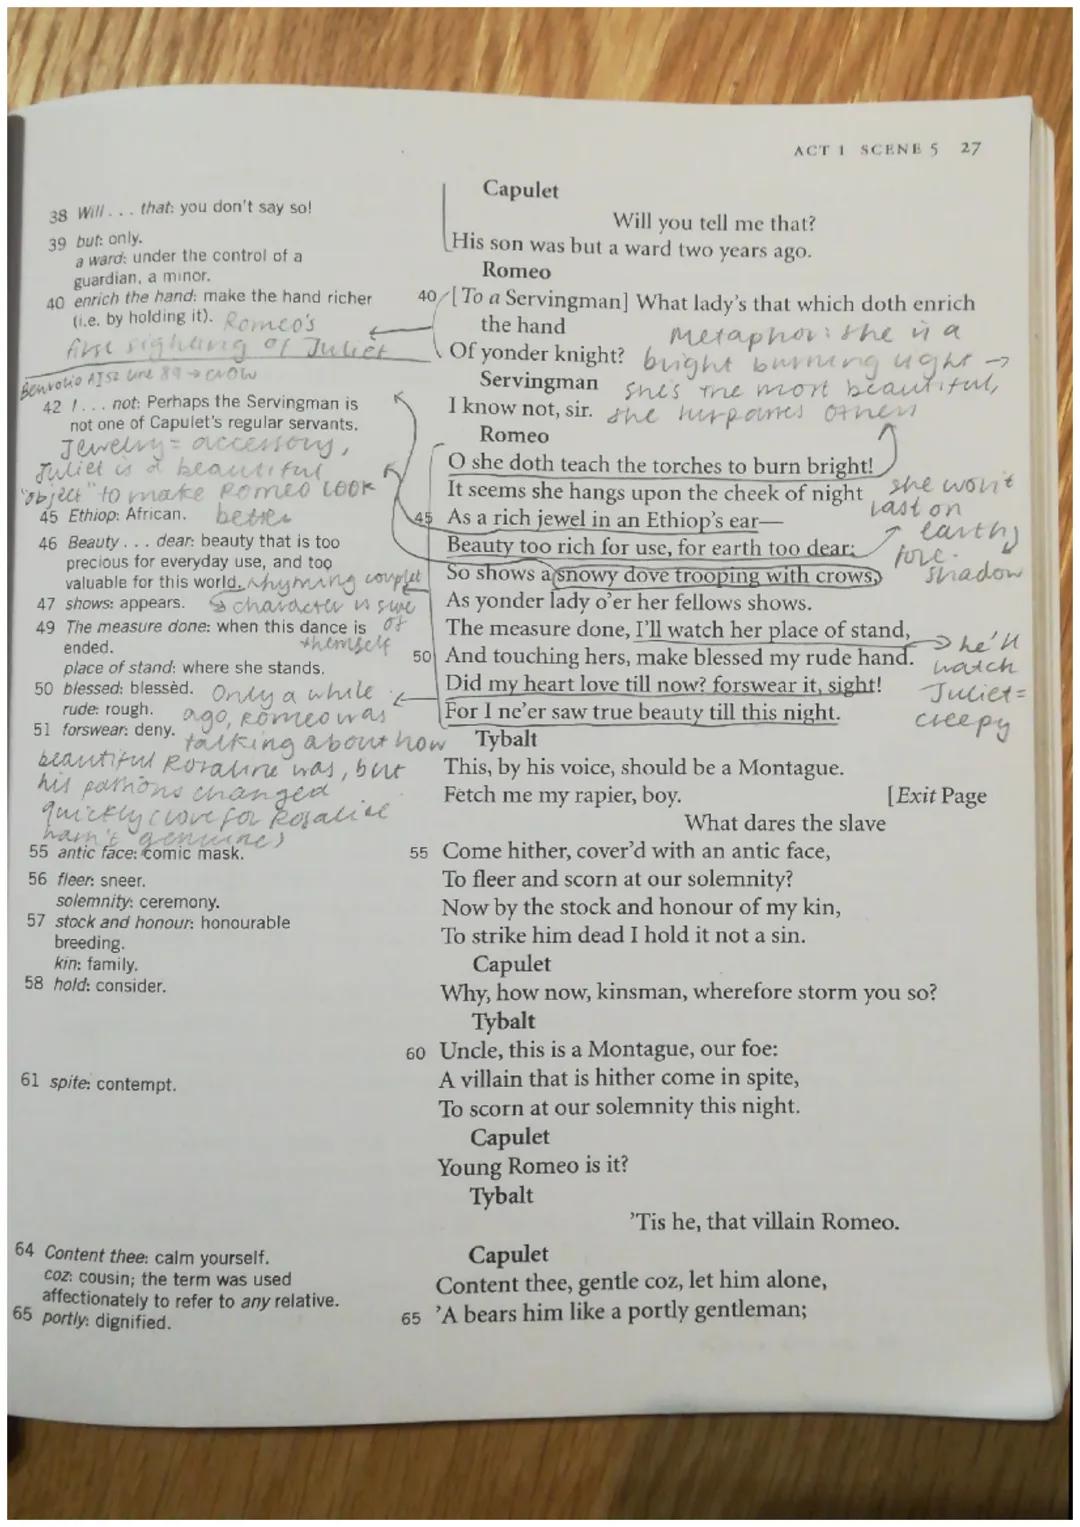 ACT 1 SCENE 5 27
38 Will . . . that: you don't say so!
39 but: only.
a ward: under the control of a
guardian, a minor.
40 enrich the hand: make the hand richer
(i.e. by holding it). Romeo's
first sighting of Juliet
Benvolio A1S2 line 89 → crow
42 I . . . not: Perhaps the Servingman is
not one of Capulet's regular servants.
Jewelry = accessory,
Juliet is a beautiful
"object" to make Romeo look
45 Ethiop: African. better
46 Beauty . . . dear: beauty that is too
precious for everyday use, and too
valuable for this world. rhyming couplet
47 shows: appears. ↳ character is sure
49 The measure done: when this dance is of
ended. themself
place of stand: where she stands.
50 blessed: blessèd. Only a while
rude: rough. ago, Romeo was
51 forswear: deny. talking about how
beautiful Rosaline was, but
his passions changed
quickly (love for Rosaline
wasn't genuine)
55 antic face: comic mask.
56 fleer: sneer.
solemnity: ceremony.
57 stock and honour: honourable
breeding.
kin: family.
58 hold: consider.
61 spite: contempt.
64 Content thee: calm yourself.
coz: cousin; the term was used
affectionately to refer to any relative.
65 portly: dignified.
Capulet
Will you tell me that?
His son was but a ward two years ago.
Romeo
40 [To a Servingman] What lady's that which doth enrich
the hand
Metaphor: she is a
Of yonder knight? bright burning light →
Servingman she's the most beautiful,
I know not, sir. she surpasses others
Romeo
O she doth teach the torches to burn bright!
It seems she hangs upon the cheek of night
45 As a rich jewel in an Ethiop's ear—
Beauty too rich for use, for earth too dear:
she won't
last on
earth,
fore-
shadow
So shows a snowy dove trooping with crows,
As yonder lady o'er her fellows shows.
The measure done, I'll watch her place of stand,
50 And touching hers, make blessed my rude hand.
→ he'll
watch
Juliet =
creepy
Did my heart love till now? forswear it, sight!
For I ne'er saw true beauty till this night.
Tybalt
This, by his voice, should be a Montague.
Fetch me my rapier, boy. [Exit Page
What dares the slave
55 Come hither, cover'd with an antic face,
To fleer and scorn at our solemnity?
Now by the stock and honour of my kin,
To strike him dead I hold it not a sin.
Capulet
Why, how now, kinsman, wherefore storm you so?
Tybalt
60 Uncle, this is a Montague, our foe:
A villain that is hither come in spite,
To scorn at our solemnity this night.
Capulet
Young Romeo is it?
Tybalt
'Tis he, that villain Romeo.
Capulet
Content thee, gentle coz, let him alone,
65 'A bears him like a portly gentleman;